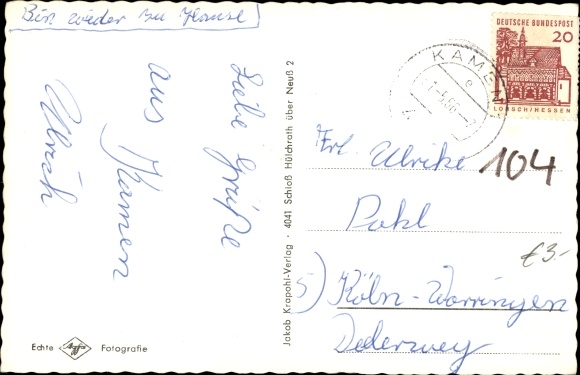 Bin wieder zu Hause!
Liebe Grüße
aus Kamen
Ulrich
Echte Agfa Fotografie
Jakob Krapohl-Verlag · 4041 Schloß Hülchrath über Neuß 2
DEUTSCHE BUNDESPOST
20
LORSCH/HESSEN
KAMEN
e
Frl. Ulrike
104
Pohl
€3.-
5) Köln-Worringen
Dederweg